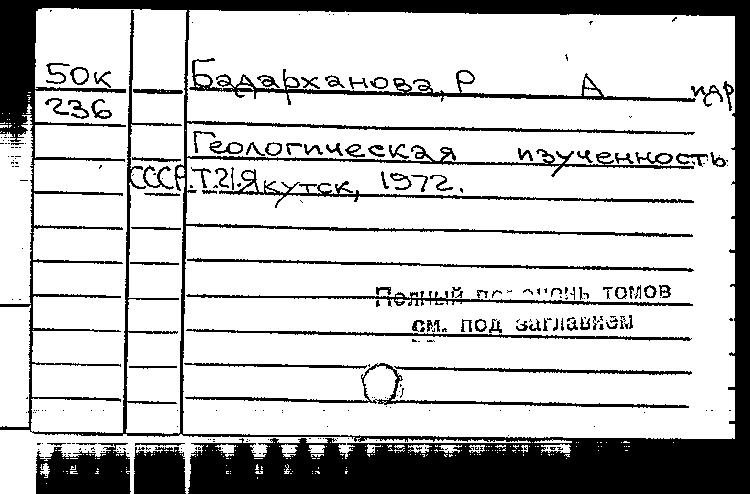 50к Бадарханова, Р А и др
236
Геологическая изученность
СССР. Т.21. Якутск, 1972.
Полный перечень томов
см. под заглавием